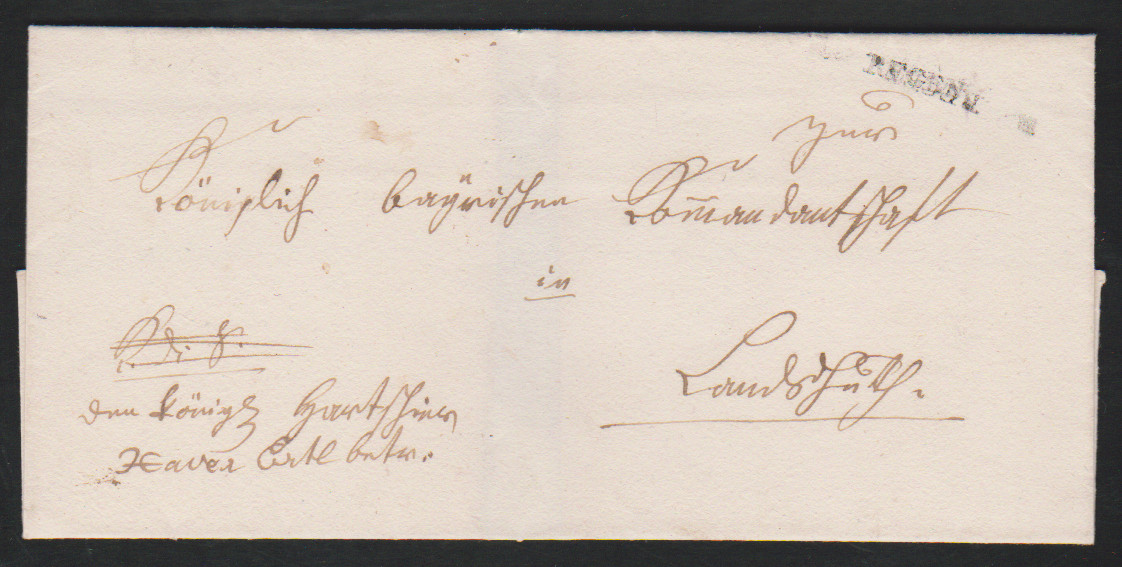 REGEN
zur
Königlich bayrischen Kommandantschaft
in
Landshuth.
den königl Hartschier
Xaver Ertl betr.